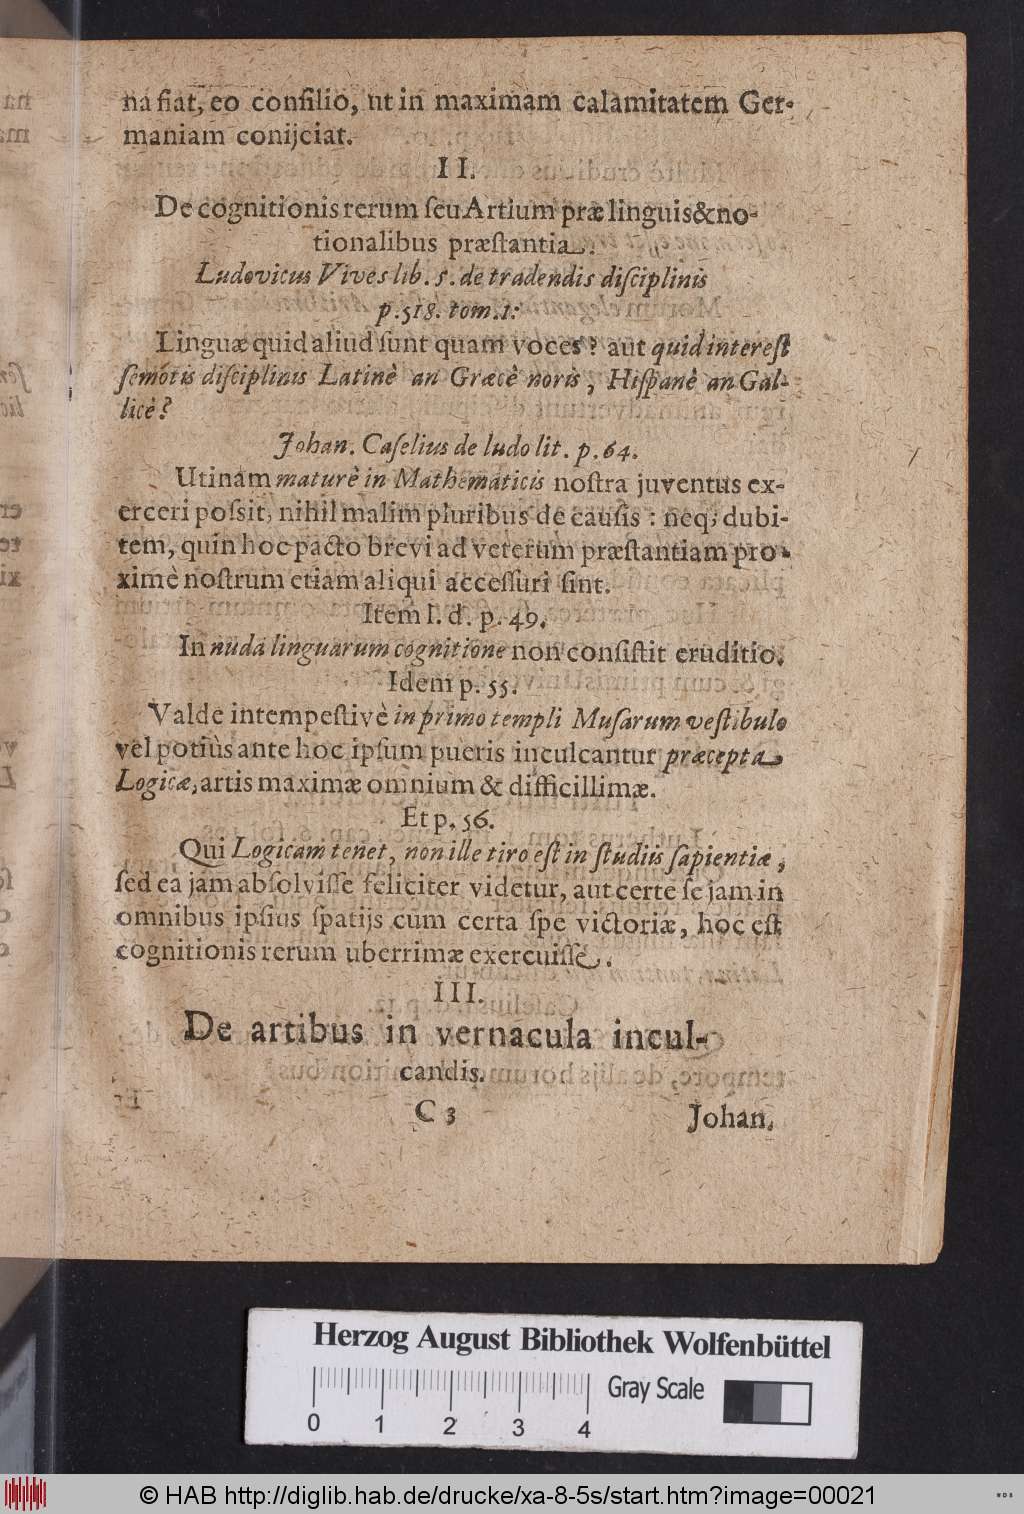 na fiat, eo consilio, ut in maximam calamitatem Ger-
maniam conijciat.
II.
De cognitionis rerum seu Artium præ linguis & no-
tionalibus præstantia.
Ludovicus Vives lib. 5. de tradendis disciplinis
p. 518. tom. 1:
Linguæ quid aliud sunt quam voces? aut quid interest
semotis disciplinis Latinè an Græcè noris, Hispanè an Gal-
licè?
Johan. Caselius de ludo lit. p. 64.
Utinam maturè in Mathematicis nostra juventus ex-
erceri possit, nihil malim pluribus de causis: neq; dubi-
tem, quin hoc pacto brevi ad veterum præstantiam pro-
ximè nostrum etiam aliqui accessuri sint.
Item l. d. p. 49.
In nuda linguarum cognitione non consistit eruditio.
Idem p. 55.
Valde intempestivè in primo templi Musarum vestibulo
vel potiùs ante hoc ipsum pueris inculcantur præcepta
Logicæ, artis maximæ omnium & difficillimæ.
Et p. 56.
Qui Logicam tenet, non ille tiro est in studiis sapientiæ,
sed ea jam absolvisse feliciter videtur, aut certe se jam in
omnibus ipsius spatijs cum certa spe victoriæ, hoc est
cognitionis rerum uberrimæ exercuisse.
III.
De artibus in vernacula incul-
candis.
C 3 Johan.
Herzog August Bibliothek Wolfenbüttel
0 1 2 3 4 Gray Scale
© HAB http://diglib.hab.de/drucke/xa-8-5s/start.htm?image=00021